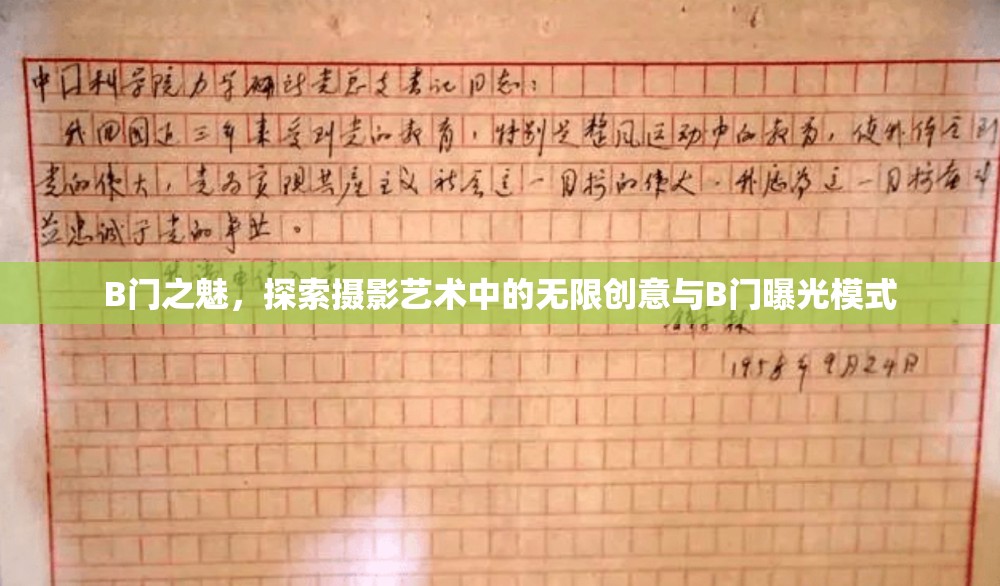 中国科学院力学研究所党总支书记同志：
我回国近三年来受到党的教育，特别是整风运动中的教育，使我体会到
党的伟大，党为实现共产主义社会这一目标的伟大。我愿为这一目标奋斗
并忠诚于党的事业。
B门之魅，探索摄影艺术中的无限创意与B门曝光模式
1958年9月24日